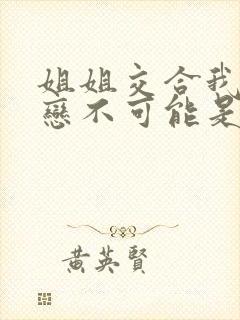 姐姐交合我
戀不可能是
黄英賢